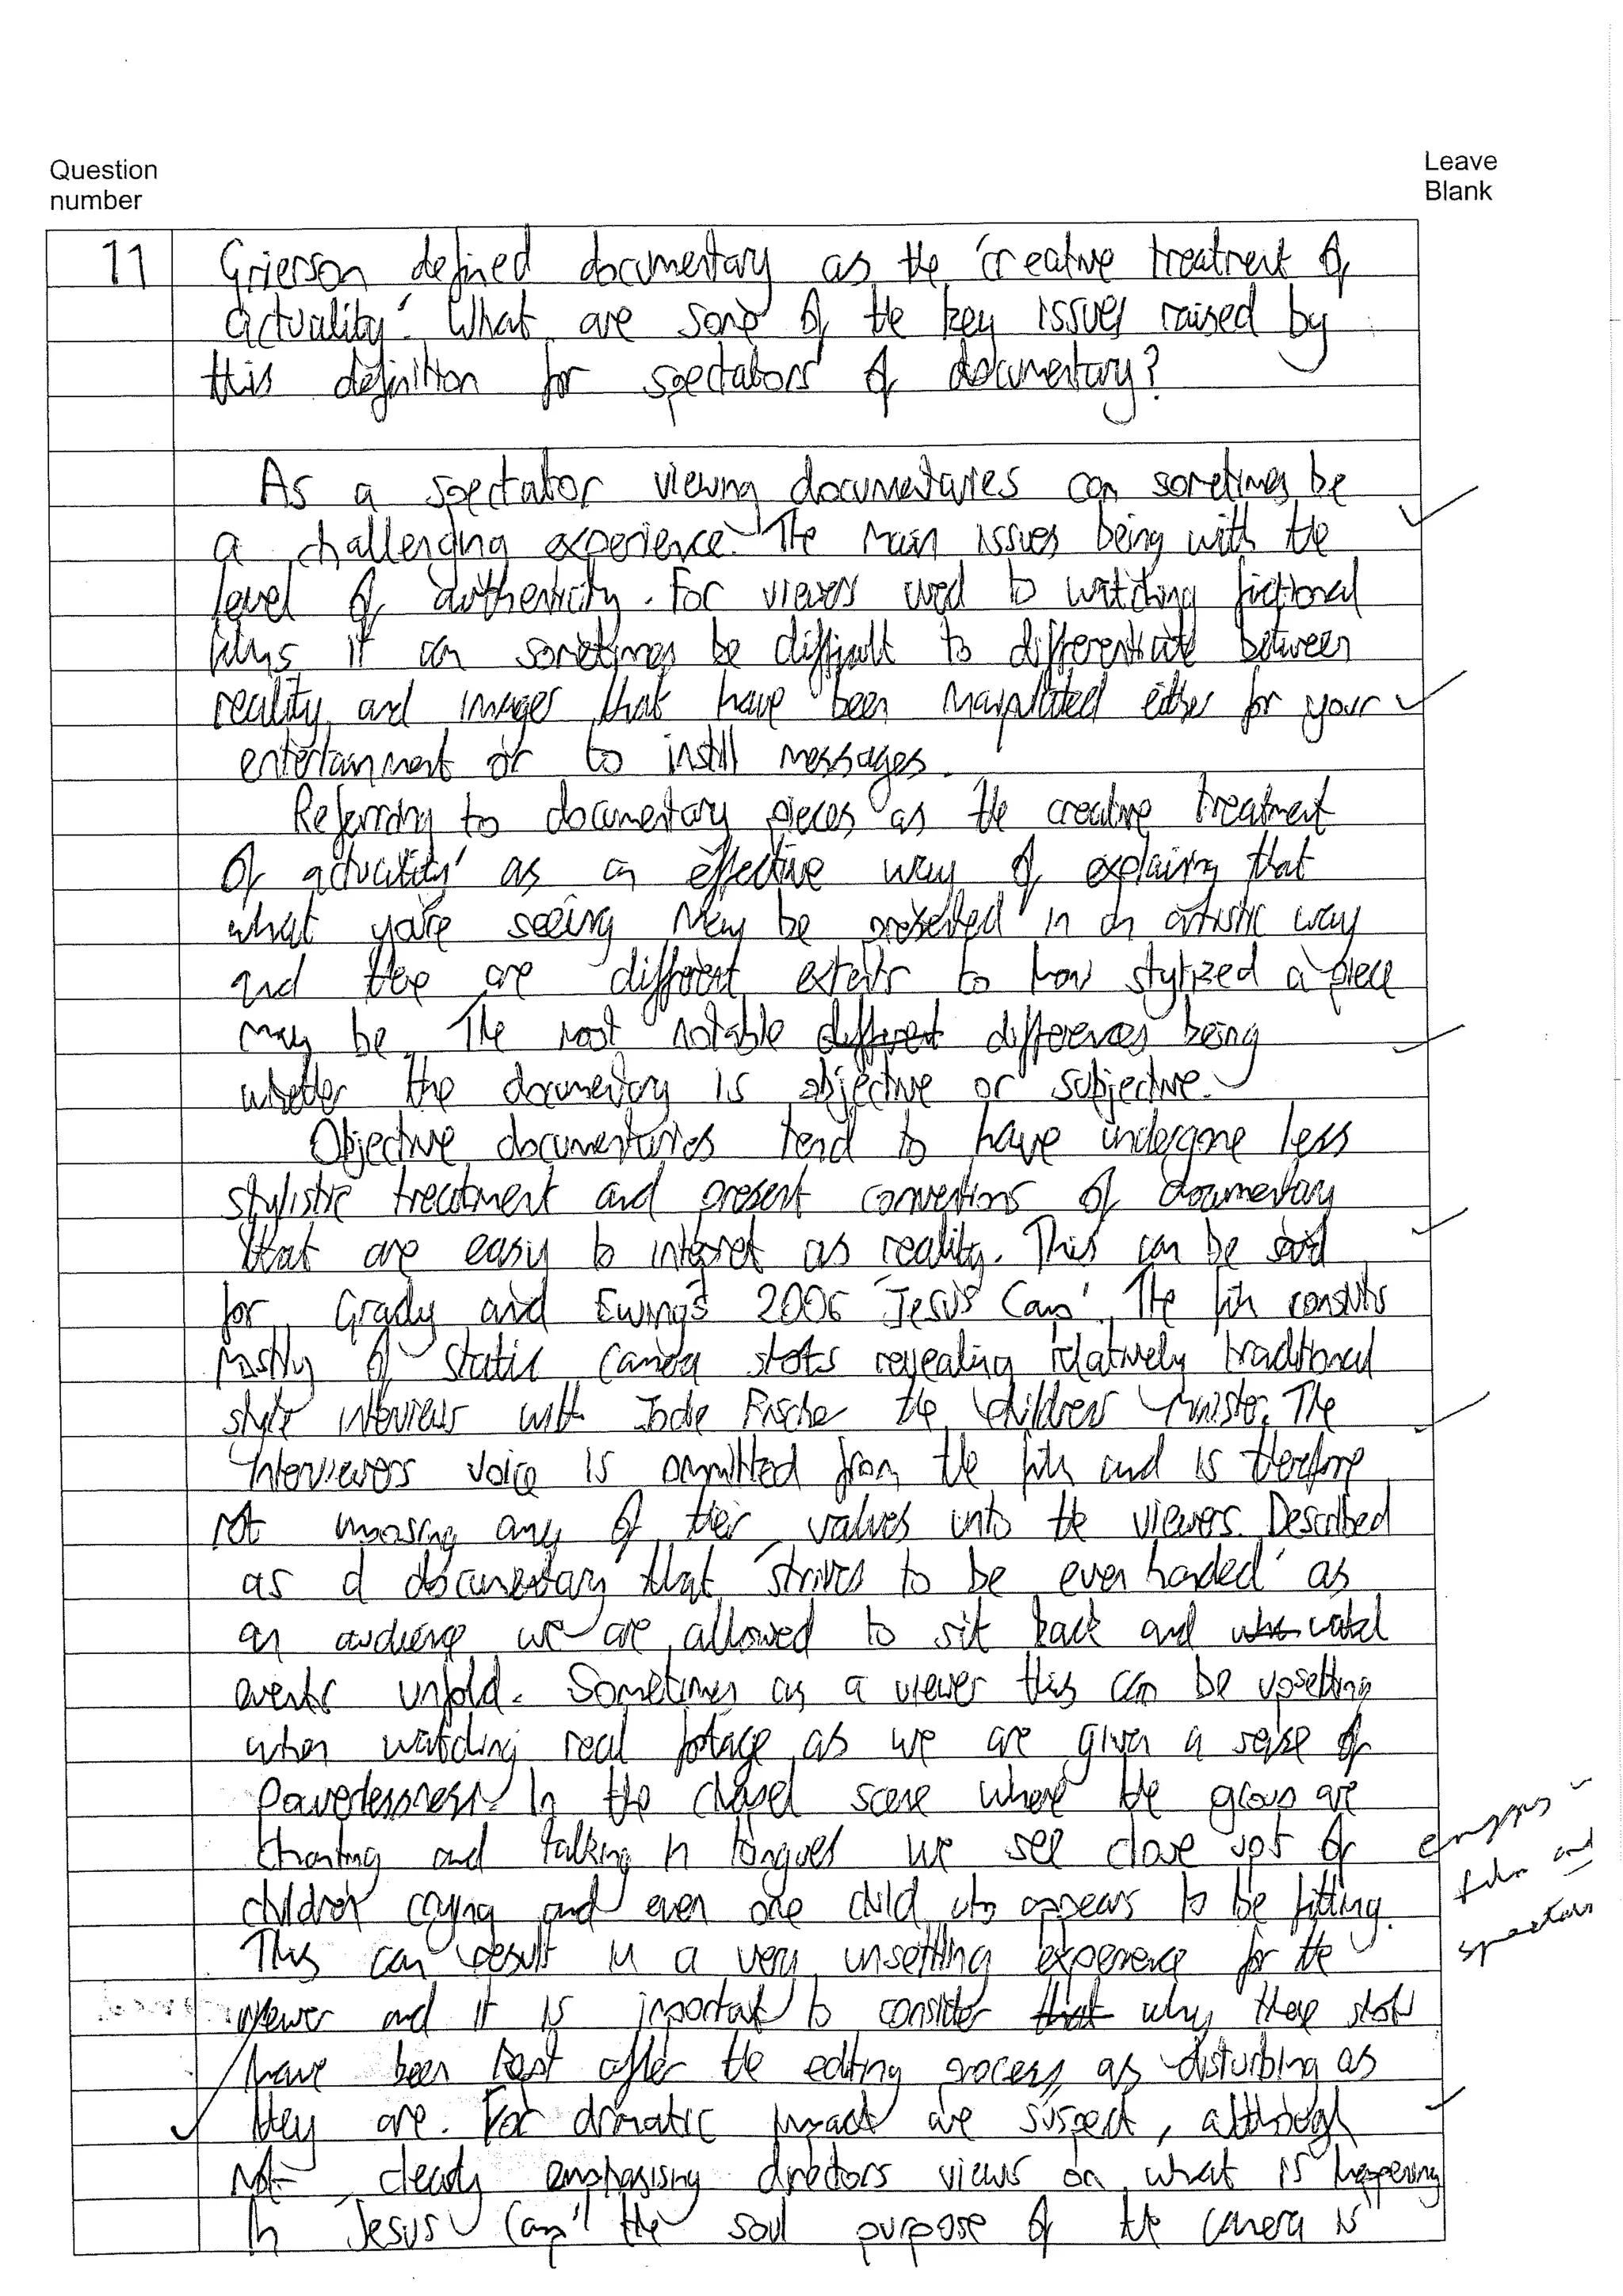 Question
number
Leave
Blank
11 Grierson defined documentary as the 'creative treatment of
actuality'. What are some of the key issues raised by
this definition for spectators of documentary?
As a spectator viewing documentaries can sometimes be
a challenging experience. The main issues being with the
level of authenticity. For viewers used to watching fictional
films it can sometimes be difficult to differentiate between
reality and images that have been manipulated either for your
entertainment or to instill messages.
Referring to documentary pieces as 'the creative treatment
of actuality' as an effective way of explaining that
what you're seeing may be presented in an artistic way
and there are different extents to how stylized a piece
may be. The most notable different differences being
whether the documentary is objective or subjective.
Objective documentaries tend to have undergone less
stylistic treatment and present conventions of documentary
that are easy to interpret as reality. This can be said
for Grady and Ewing's 2006 'Jesus Camp'. The film consists
mostly of static camera shots revealing relatively traditional
style interviews with Jodie Fischer the children minister. The
interviewers voice is ommitted from the film and is therefore
not imposing any of their values unto the viewers. Described
as a documentary that 'strives to be even handed' as
an audience we are allowed to sit back and watch
events unfold. Sometimes as a viewer this can be upsetting
when watching real footage as we are given a sense of
powerlessness. In the chapel scene where the group are
chanting and talking in tongues we see close ups of
children crying and even one child who appears to be fitting.
This can result in a very unsettling experience for the
viewer and it is important to consider that why these shots
have been kept after the editing process, as disturbing as
they are. For dramatic impact we suspect, although
not clearly emphasising directors views on what is happening
in 'Jesus Camp' the soul purpose of the camera is
engages
film and
spectator